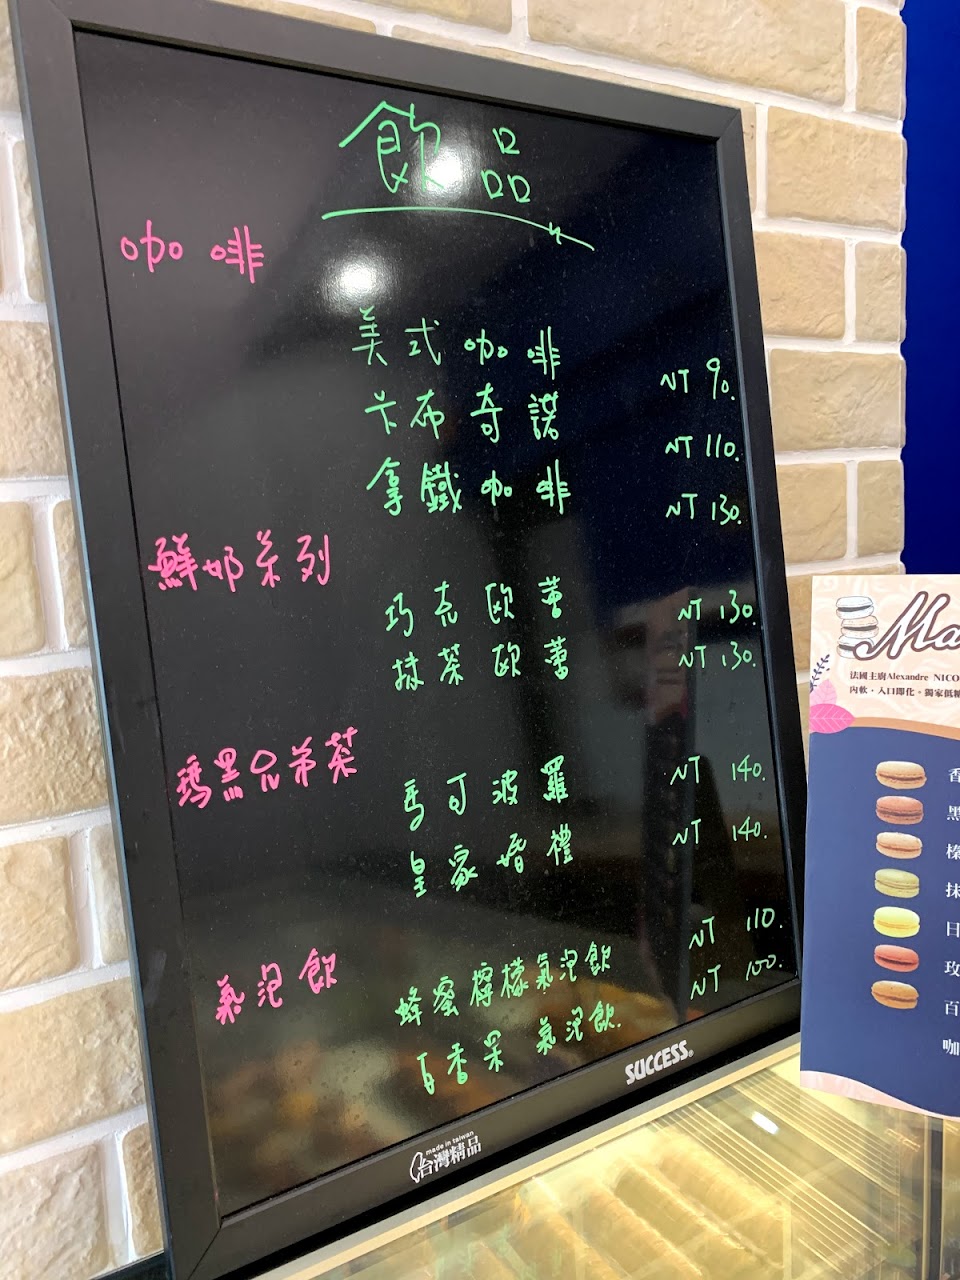 飲品
咖啡
美式咖啡 NT 90.
卡布奇諾 NT 110.
拿鐵咖啡 NT 130.
鮮奶系列
巧克歐蕾 NT 130.
抹茶歐蕾 NT 130.
瑪黑兄弟茶
馬可波羅 NT 140.
皇家婚禮 NT 140.
氣泡飲
蜂蜜檸檬氣泡飲 NT 110.
百香果 氣泡飲. NT 100.
SUCCESS®
made in taiwan
台灣精品
Ma
法國主廚Alexandre NICO
內軟,入口即化。獨家低糖
香
黑
榛
抹
日
玫
百
咖